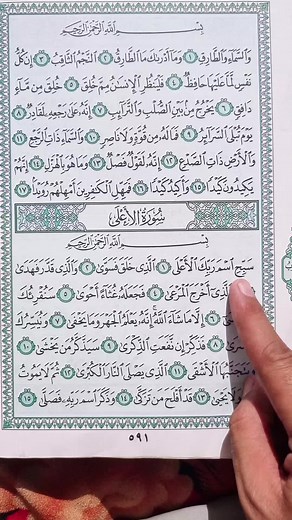 بِسْمِ اللَّهِ الرَّحْمَٰنِ الرَّحِيمِ
وَالسَّمَاءِ وَالطَّارِقِ ١ وَمَا أَدْرَاكَ مَا الطَّارِقُ ٢ النَّجْمُ الثَّاقِبُ ٣ إِن كُلُّ
نَفْسٍ لَّمَّا عَلَيْهَا حَافِظٌ ٤ فَلْيَنظُرِ الْإِنسَانُ مِمَّ خُلِقَ ٥ خُلِقَ مِن مَّاءٍ
دَافِقٍ ٦ يَخْرُجُ مِن بَيْنِ الصُّلْبِ وَالتَّرَائِبِ ٧ إِنَّهُ عَلَىٰ رَجْعِهِ لَقَادِرٌ ٨
يَوْمَ تُبْلَى السَّرَائِرُ ٩ فَمَا لَهُ مِن قُوَّةٍ وَلَا نَاصِرٍ ١٠ وَالسَّمَاءِ ذَاتِ الرَّجْعِ ١١
وَالْأَرْضِ ذَاتِ الصَّدْعِ ١٢ إِنَّهُ لَقَوْلٌ فَصْلٌ ١٣ وَمَا هُوَ بِالْهَزْلِ ١٤ إِنَّهُمْ
يَكِيدُونَ كَيْدًا ١٥ وَأَكِيدُ كَيْدًا ١٦ فَمَهِّلِ الْكَافِرِينَ أَمْهِلْهُمْ رُوَيْدًا ١٧
سُورَةُ الْأَعْلَى
بِسْمِ اللَّهِ الرَّحْمَٰنِ الرَّحِيمِ
سَبِّحِ اسْمَ رَبِّكَ الْأَعْلَى ١ الَّذِي خَلَقَ فَسَوَّىٰ ٢ وَالَّذِي قَدَّرَ فَهَدَىٰ
أَخْرَجَ الْمَرْعَىٰ ٤ فَجَعَلَهُ غُثَاءً أَحْوَىٰ ٥ سَنُقْرِئُكَ
إِلَّا مَا شَاءَ اللَّهُ إِنَّهُ يَعْلَمُ الْجَهْرَ وَمَا يَخْفَىٰ ٧ وَنُيَسِّرُكَ
فَذَكِّرْ إِن نَّفَعَتِ الذِّكْرَىٰ ٩ سَيَذَّكَّرُ مَن يَخْشَىٰ ١٠
وَيَتَجَنَّبُهَا الْأَشْقَى ١١ الَّذِي يَصْلَى النَّارَ الْكُبْرَىٰ ١٢ ثُمَّ لَا يَمُوتُ
وَلَا يَحْيَىٰ ١٣ قَدْ أَفْلَحَ مَن تَزَكَّىٰ ١٤ وَذَكَرَ اسْمَ رَبِّهِ فَصَلَّىٰ ١٥
٥٩١